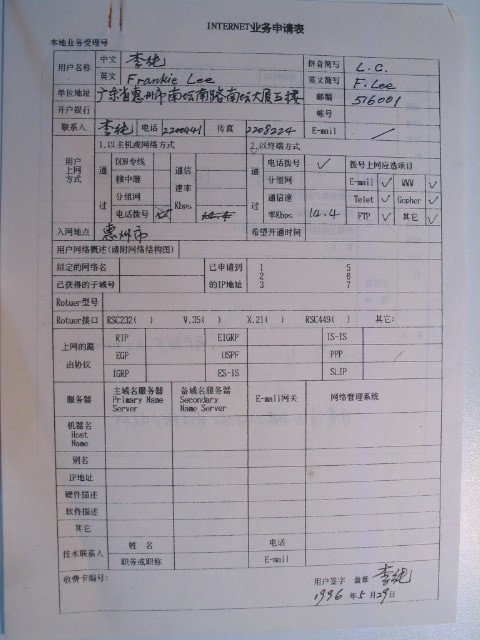 INTERNET业务申请表
本地业务受理号
用户名称 中文 李纯 拼音简写 L.C.
英文 Frankie Lee 英文简写 F.Lee
单位地址 广东省惠州市南坛南路南坛大厦五楼 邮编 516001
开户银行 帐号
联系人 李纯 电话 2200441 传真 2208224 E-mail
用户上网方式 1.以主机或网络方式 2.以终端方式
通过 DDN专线 通信速率Kbps 通过 电话拨号 ✓ 拨号上网应选项目
帧中继 分组网 E-mail ✓ WWW ✓
分组网 通信速率Kbps 14.4 Telet ✓ Gopher ✓
电话拨号 FTP ✓ 其它 ✓
入网地点 惠州市 希望开通时间
用户网络概述(请附网络结构图)
拟定的网络名 已申请到的IP地址 1 5
2 6
已获得的子域号 3 7
Rotuer型号
Rotuer接口 RSC232( ) V.35( ) X.21( ) RSC449( ) 其它:
上网的路由协议 RIP EIGRP IS-IS
EGP OSPF PPP
IGRP ES-IS SLIP
服务器 主域名服务器 Primary Name Server 备域名服务器 Secondary Name Server E-mail网关 网络管理系统
机器名 Host Name
别名
IP地址
硬件描述
软件描述
其它
技术联系人 姓名 电话
职务或职称 E-mail
收费卡编号:
用户签字 盖章 李纯
1996年5月29日